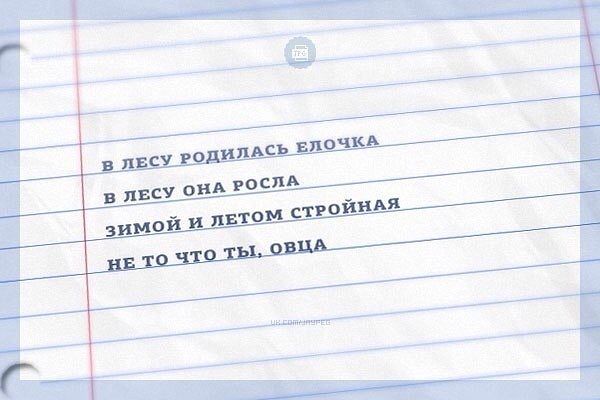 JPG
В ЛЕСУ РОДИЛАСЬ ЕЛОЧКА
В ЛЕСУ ОНА РОСЛА
ЗИМОЙ И ЛЕТОМ СТРОЙНАЯ
НЕ ТО ЧТО ТЫ, ОВЦА
VK.COM/JAYPEG